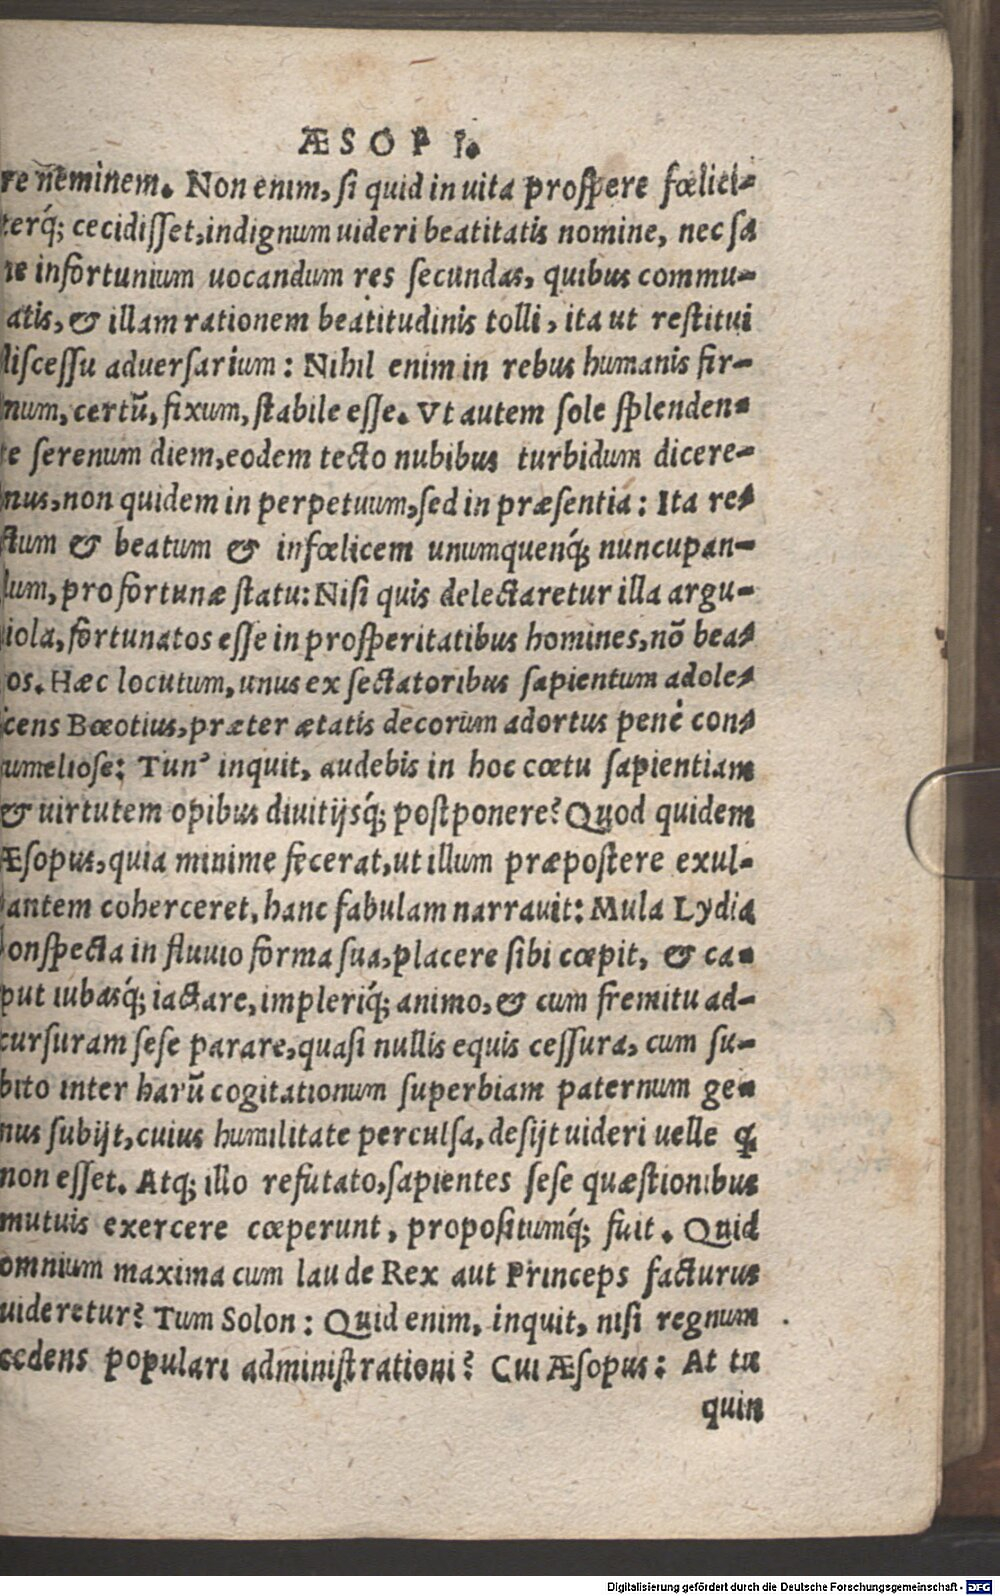 ÆSOPI.
re neminem. Non enim, si quid in uita prospere fœlici-
terq́; cecidisset, indignum uideri beatitatis nomine, nec sa
ne infortunium uocandum res secundas, quibus commu-
atis, & illam rationem beatitudinis tolli, ita ut restitui
discessu aduersarium: Nihil enim in rebus humanis fir-
mum, certũ, fixum, stabile esse. Vt autem sole splenden-
te serenum diem, eodem tecto nubibus turbidum dicere-
mus, non quidem in perpetuum, sed in præsentia: Ita re-
ctum & beatum & infœlicem unumquenq́; nuncupan-
dum, pro fortunæ statu: Nisi quis delectaretur illa argu-
tiola, fortunatos esse in prosperitatibus homines, nõ bea-
tos. Hæc locutum, unus ex sectatoribus sapientum adole-
scens Bœotius, præter ætatis decorum adortus penè con-
tumeliose: Tun' inquit, audebis in hoc cœtu sapientiam
& uirtutem opibus diuitijsq́; postponere? Quod quidem
Æsopus, quia minime fecerat, ut illum præpostere exul-
tantem coherceret, hanc fabulam narrauit: Mula Lydia
conspecta in fluuio forma sua, placere sibi cœpit, & ca-
put iubasq́; iactare, impleriq́; animo, & cum fremitu ad-
cursuram sese parare, quasi nullis equis cessura, cum su-
bito inter harũ cogitationum superbiam paternum ge-
nus subijt, cuius humilitate perculsa, desijt uideri uelle q̃
non esset. Atq; illo refutato, sapientes sese quæstionibus
mutuis exercere cœperunt, propositumq́; fuit. Quid
omnium maxima cum laude Rex aut Princeps facturus
uideretur? Tum Solon: Quid enim, inquit, nisi regnum
cedens populari administrationi? Cui Æsopus: At tu
quin
Digitalisierung gefördert durch die Deutsche Forschungsgemeinschaft - DFG